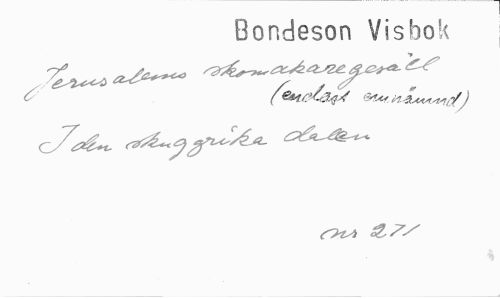 Bondeson Visbok
Jerusalems skomakaregesäll
(endast omnämnd)
I den skuggrika dalen
nr 271